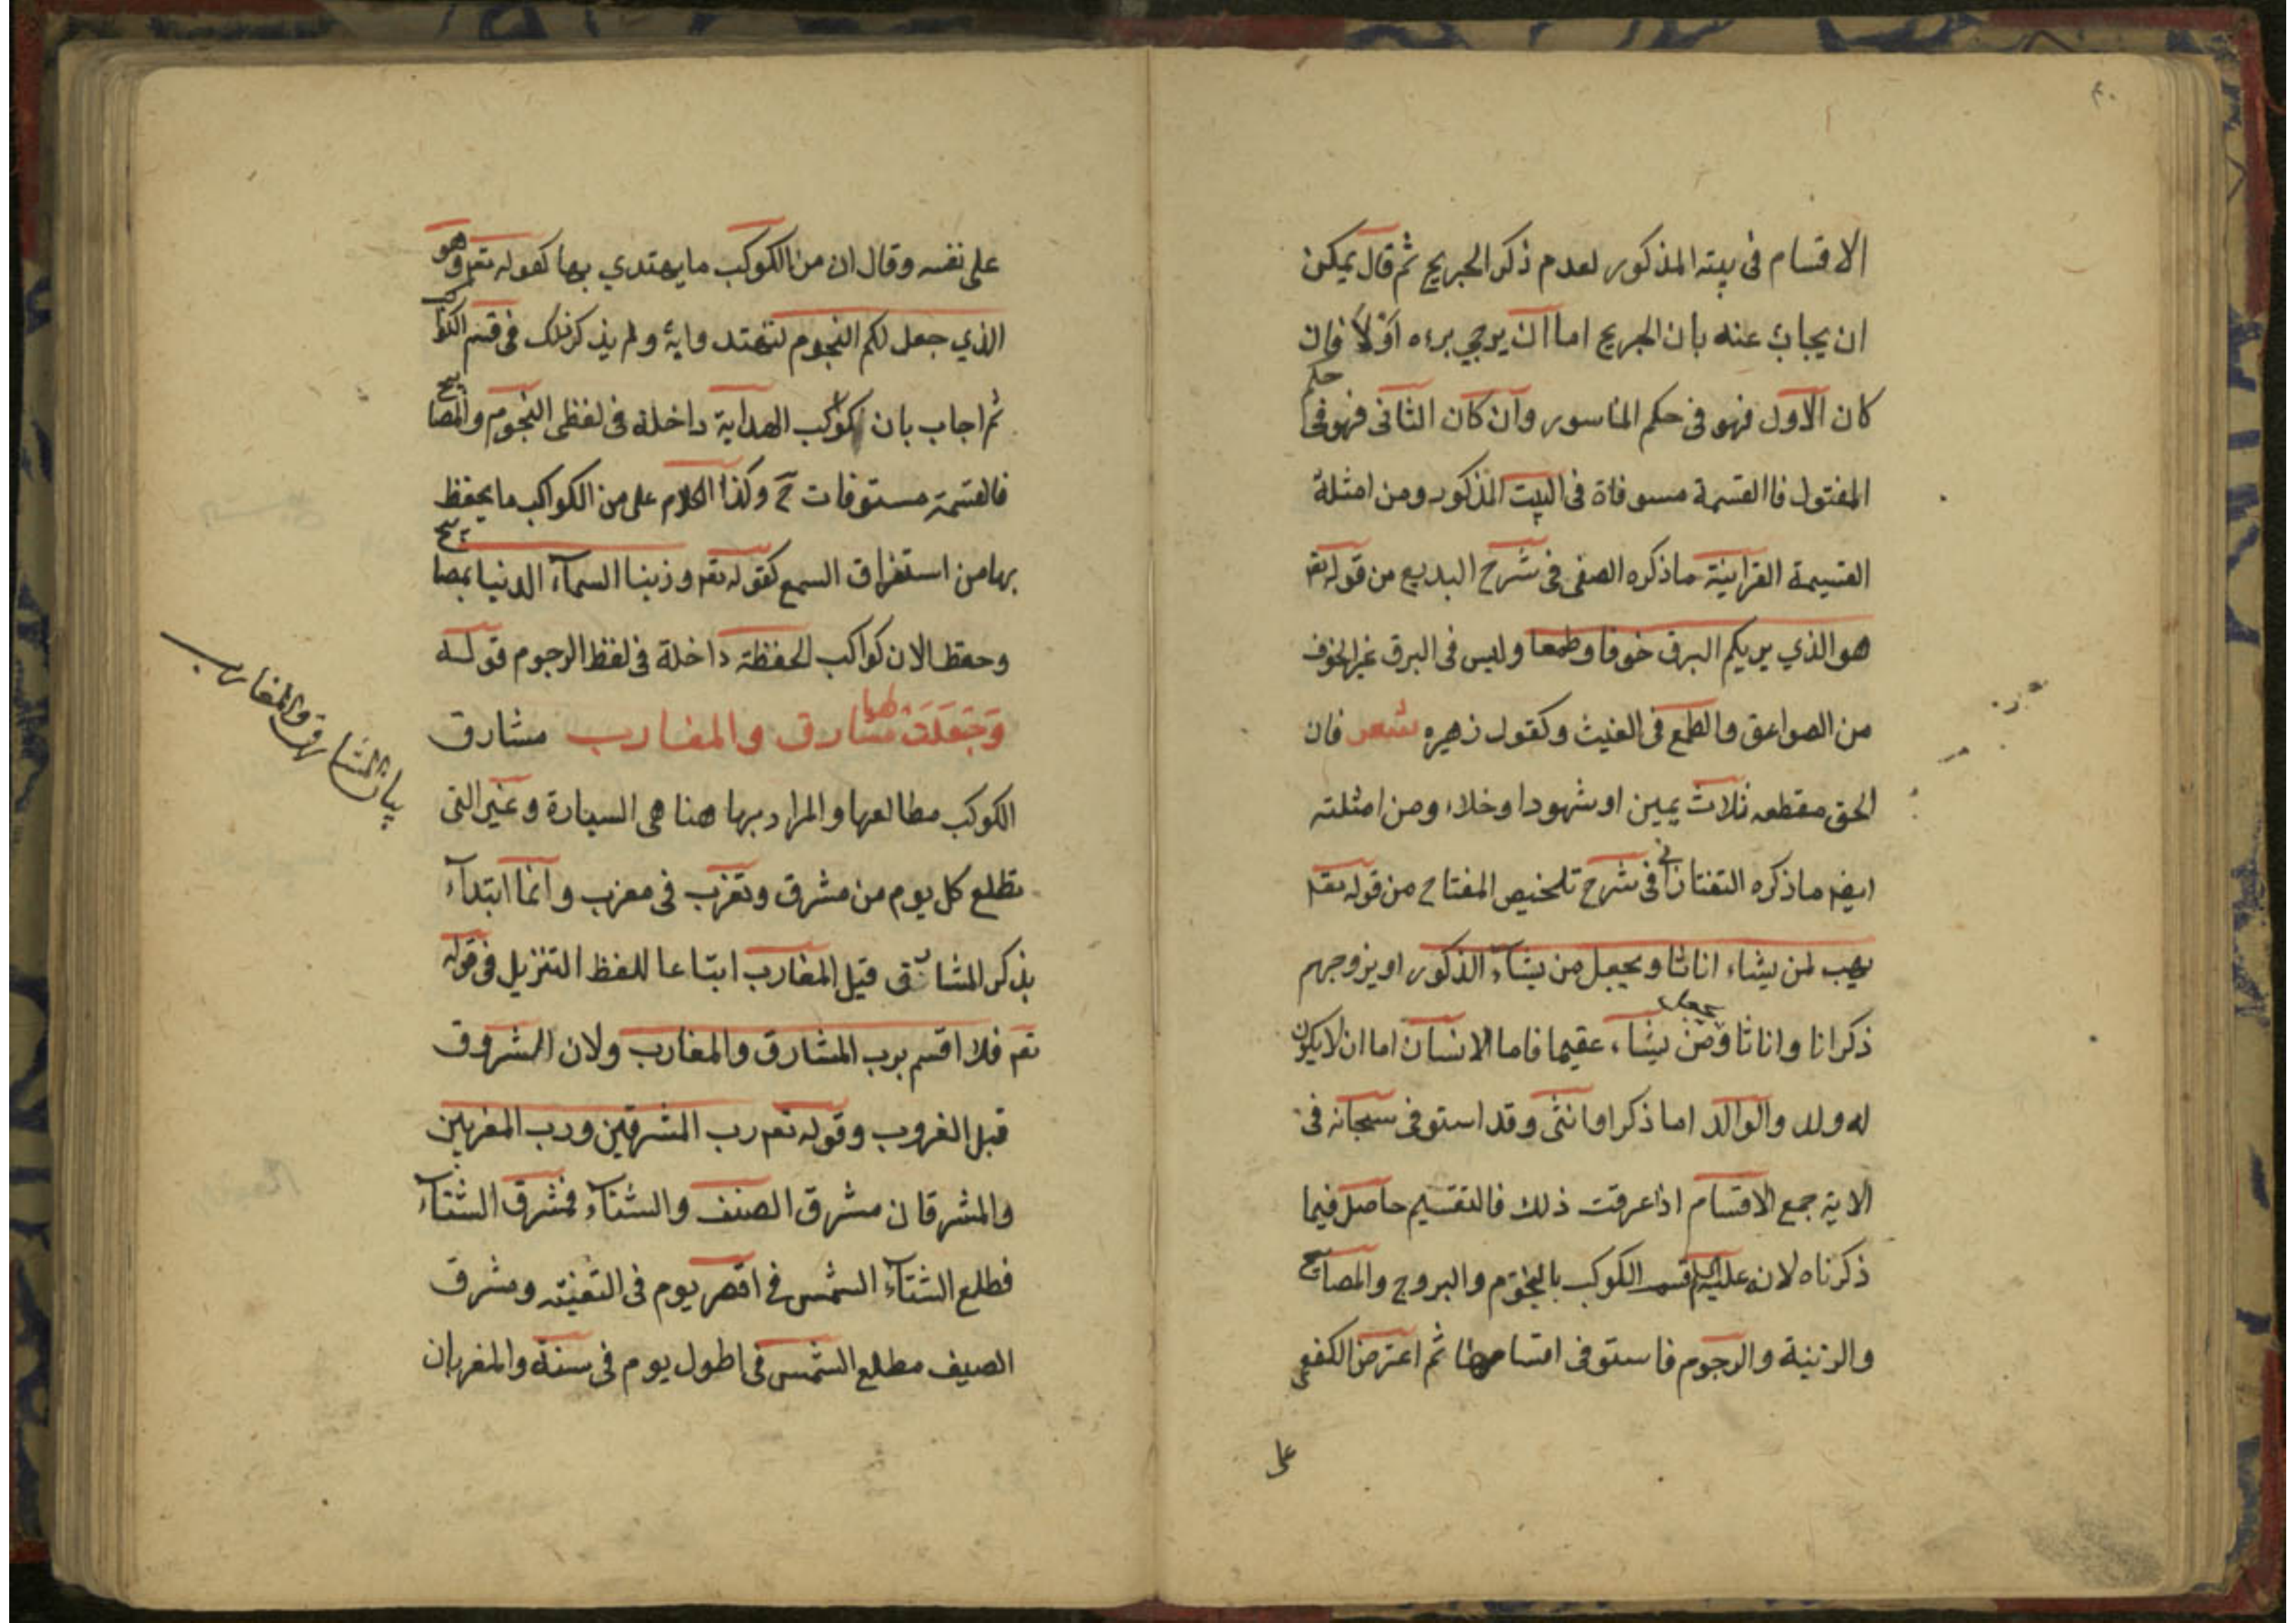 ٤٠
الاقسام فى بيته المذكور لعدم ذكر الجريح ثم قال يمكن
ان يجاب عنه بان الجريح اما ان يرجي برءه اولا فان
كان الاول فهو فى حكم الماسور وان كان الثانى فهو فى حكم
المقتول فاالقسمة مسوفاة فى البيت المذكور ومن امثلة
القسيمة القرانية ماذكره الصفى فى شرح البديع من قوله تعـ
هو الذي يريكم البرق خوفا وطمعا وليس فى البرق غير الخوف
من الصواعق والطمع فى الغيث وكقول زهيره شعر فان
الحق مقطعه ثلاث يمين او شهودا وخلاء ومن امثلته
ايضـ ماذكره التفتازانى فى شرح تلخيص المفتاح من قوله تعـ
يهب لمن يشاء اناثا ويجعل من يشاء الذكور او يزوجهم
ذكرانا واناثا ويجعل من يشاء عقيما فاما الانسان اما ان لا يكون
له ولد والوالد اما ذكر او انثى وقد استوفى سبحانه فى
الاية جمع الاقسام اذا عرفت ذلك فالتقسيم حاصل فيما
ذكرناه لانه عليه قسم الكوكب بالنجوم والبروج والمصابيح
والزينة والرجوم فاستوفى اقسامها ثم اعترض الكفعمى
على
على نفسه وقال ان من الكوكب ما يهتدي بها كقوله تعـ وهو
الذي جعل لكم النجوم لتهتد واية ولم يذكر ذلك فى قسم الكواكب
ثم اجاب بان كواكب الهداية داخلة فى لفظى النجوم والمصابيح
فالقسمة مستوفات ح وكذا الكلام على من الكواكب ما يحفظ
بها من استراق السمع كقوله تعـ وزينا السماء الدنيا بمصابيح
وحفظا لان كواكب الحفظة داخلة فى لفظ الرجوم قوله
وَجَعَلَتْ لها مشارق والمغارب مشارق
الكوكب مطالعها والمراد بها هنا هى السيارة وغير التى
تطلع كل يوم من مشرق وتغرب فى مغرب وانما ابتداء
بذكر المشارق قيل المغارب ابتاعا للفظ التنزيل فى قوله
تعـ فلا اقسم برب المشارق والمغارب ولان الشروق
قبل الغروب وقوله تعـ رب المشرقين ورب المغربين
والمشرقان مشرق الصيف والشتاء فمشرق الشتاء
فطلع الشتاء الشمس فى اقصر يوم فى ومشرق
الصيف مطلع الشمس فى اطول يوم فى سنة والمغربان
بيان المشارق والمغارب